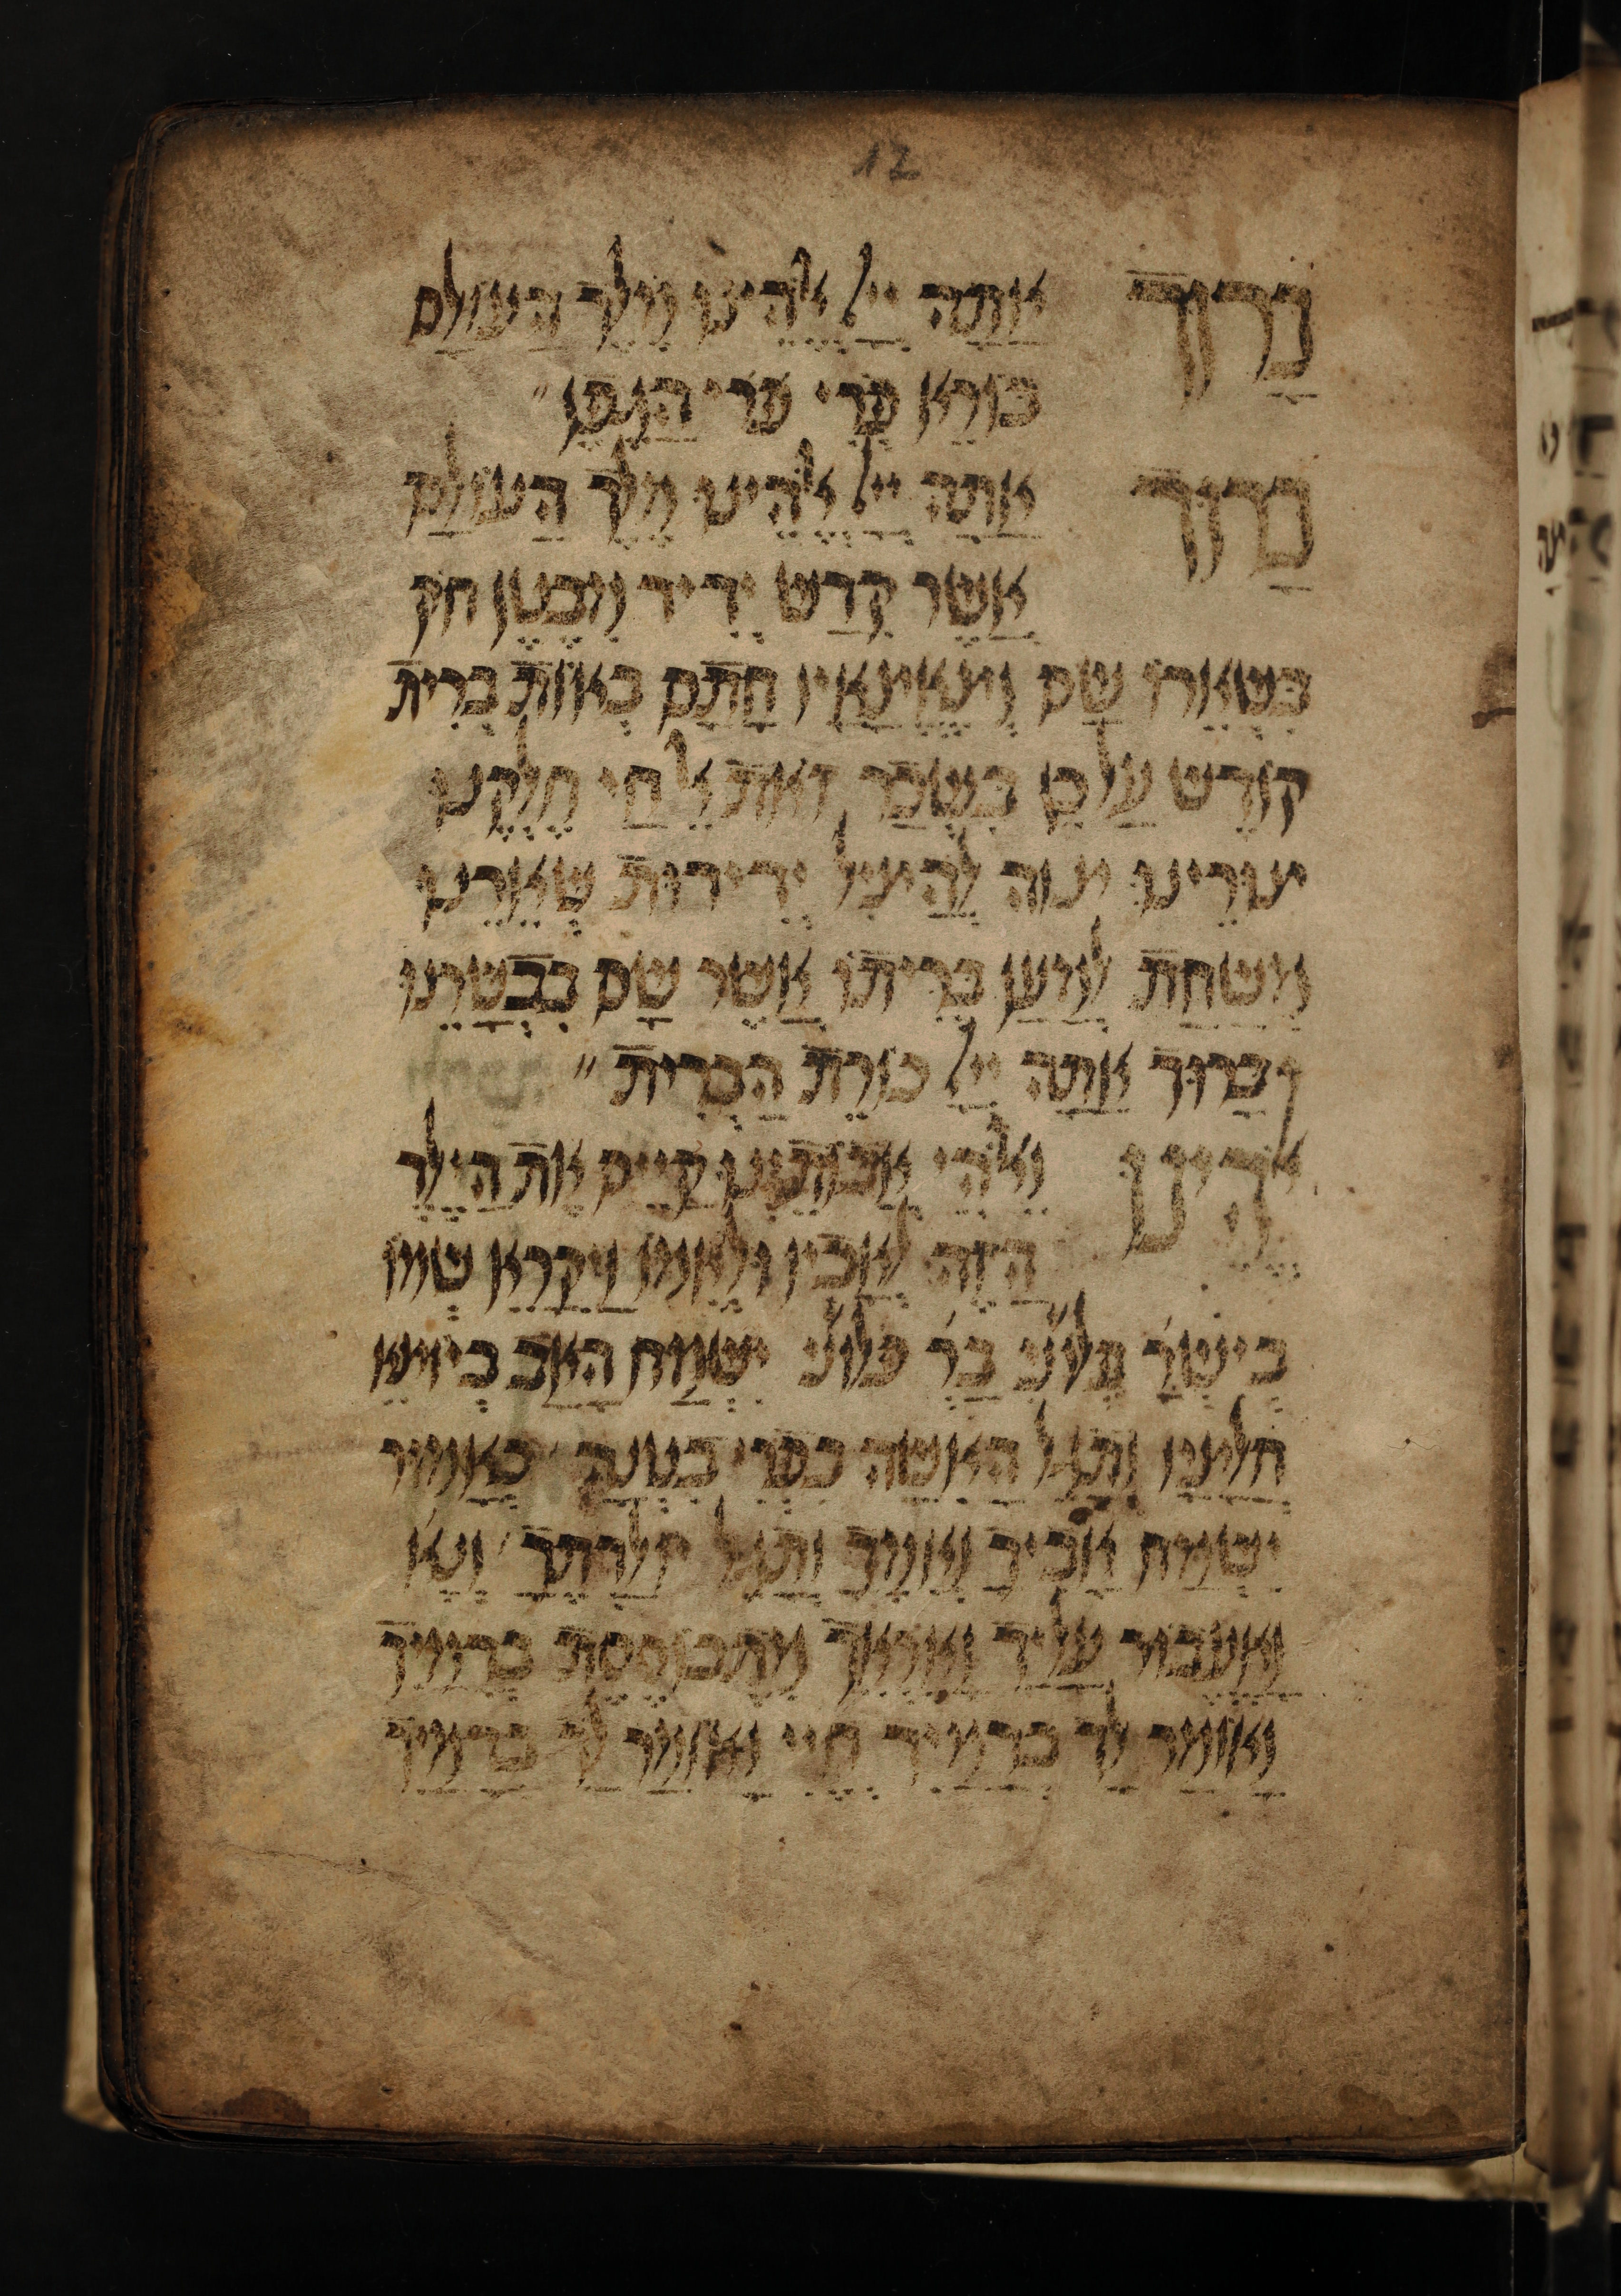 12
בָרוּךְ אַתָה יְיָ אֱלֹהֵינוּ מֶלֶךְ הָעוֹלָם
בורא פרי הגפן
בָרוּךְ אתה ייָ אלהינו מלך העולם
אשר קדש ידיד מבטן חק
בשארו שם וצאצאיו חתם באות ברית
קודש על כן בשכר זאת אל חי חלקנו
צורינו צוה להציל ידידות שארינו
משחת למען בריתו אשר שם בבשרנו
ברוך אתה ייָ כורת הברית
אלהינו ואלהי אבותינו קיים את הילד
הזה לאביו ולאמו ויקרא שמו
בישר פלוני בר פלוני ישמח האב ביוצא
חלציו ותגל האשה בפרי בטנה כאמור
ישמח אביך ואמך ותגל יולדתך ונא
ואעבור עליך ואראך מתבוססת בדמיך
ואומר לך בדמיך חיי ואומר לך בדמיך